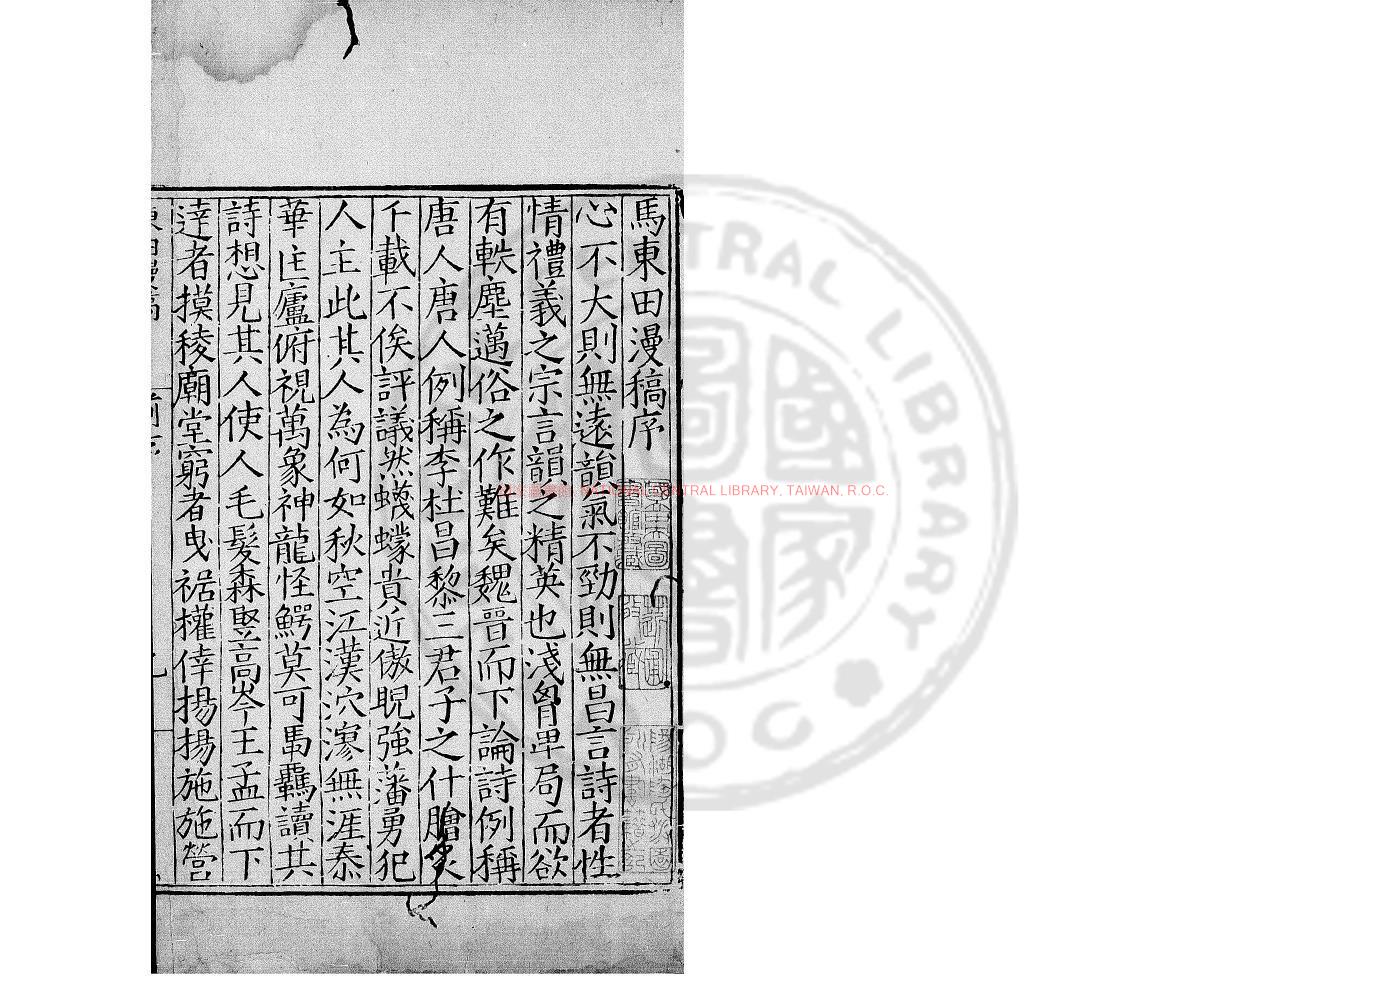 馬東田漫稿序
心不大則無遠韻氣不勁則無昌言詩者性
情禮義之宗言韻之精英也淺胷卑局而欲
有軼塵邁俗之作難矣魏晉而下論詩例稱
唐人唐人例稱李杜昌黎三君子之什膾炙
千載不俟評議然蠛蠓貴近傲睨強藩勇犯
人主此其人為何如秋空江漢泬漻無涯泰
華匡廬俯視萬象神龍怪鰐莫可馬羈讀其
詩想見其人使人毛髮森竪高岑王孟而下
達者摸稜廟堂窮者曳裾權倖揚揚施施營
NATIONAL CENTRAL LIBRARY, TAIWAN, R.O.C.
CENTRAL LIBRARY